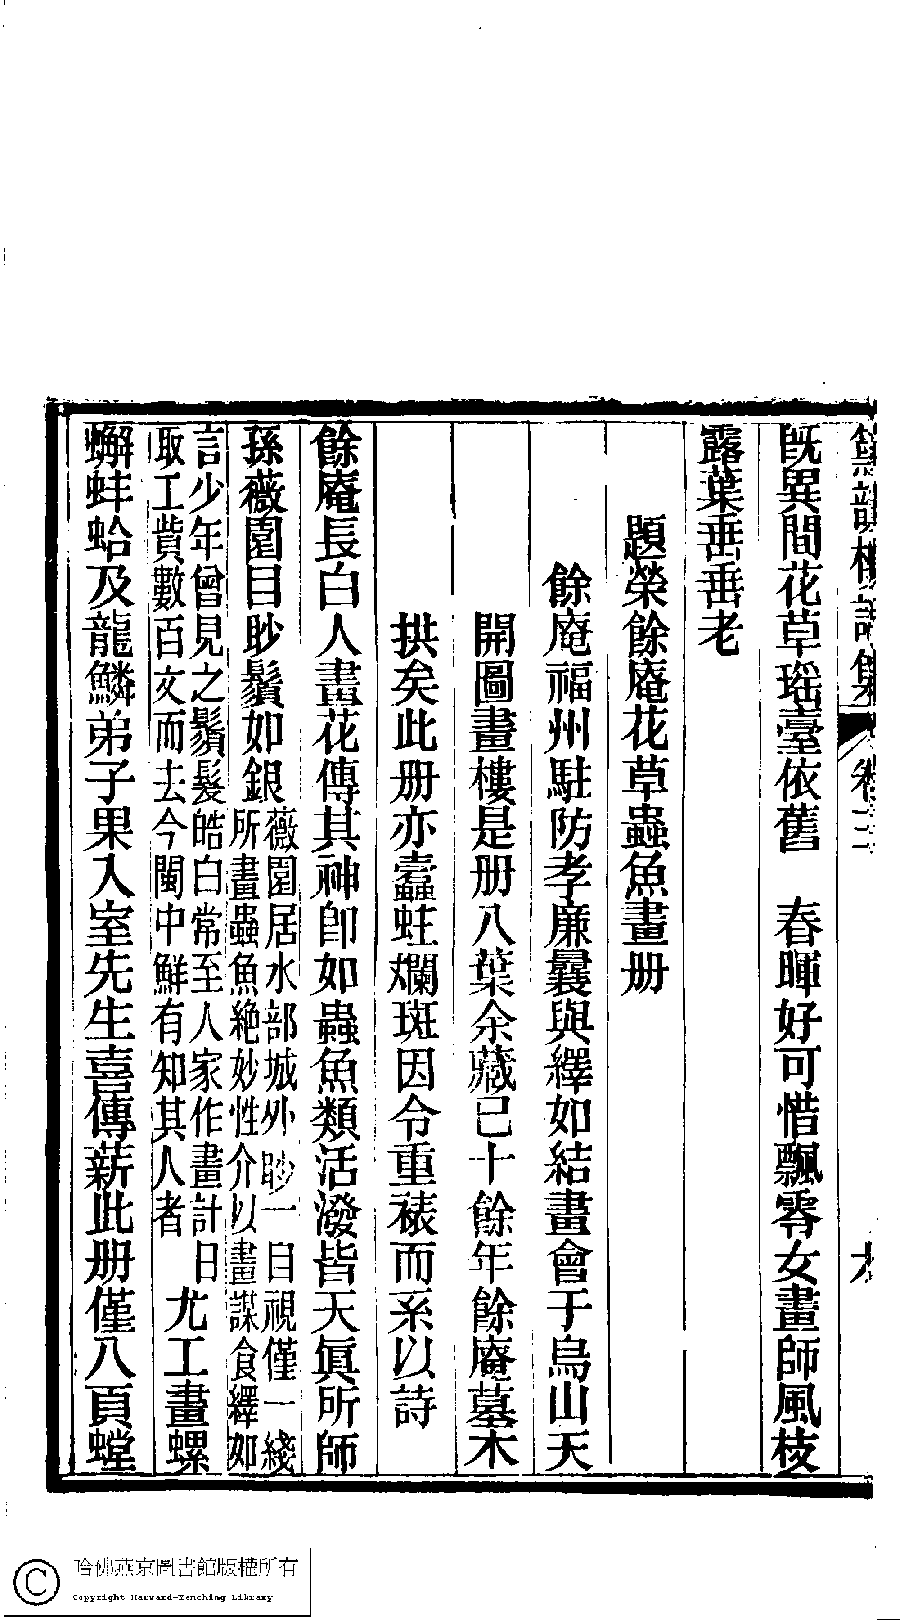 既異間花草瑶臺依舊　春暉好可惜飄零女畫師風枝
露葉垂垂老
題榮餘庵花草蟲魚畫册
餘庵福州駐防孝廉曩與繹如結畫會于烏山天
開圖畫樓是册八葉余藏已十餘年餘庵墓木
拱矣此册亦蠹蛀斕斑因令重裱而系以詩
餘庵長白人畫花傳其神卽如蟲魚類活潑皆天眞所師
孫薇園目眇鬚如銀
薇園居水部城外眇一目視僅一綫
所畫蟲魚絶妙性介以畫謀食繹如
言少年曾見之鬚髮皓白常至人家作畫計日
取工貲數百文而去今閩中鮮有知其人者
尤工畫螺
蠏蚌蛤及龍鱗弟子果入室先生喜傳薪此册僅八頁螳
哈佛燕京圖書館版權所有
Copyright Harvard-Yenching Library